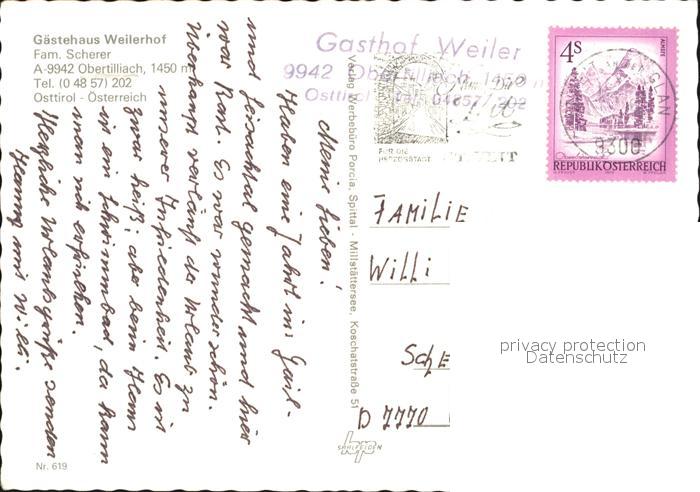 Gästehaus Weilerhof
Fam. Scherer
A-9942 Obertilliach, 1450 m
Tel. (0 48 57) 202
Osttirol - Österreich
Gasthof Weiler
9942 Obertilliach, 1450 m
Osttirol, Tel. 04857/202
Meine Lieben!
Haben eine Fahrt ins Gail-
und Lesachtal gemacht und hier
war Rast. Es war wunderschön.
Überhaupt verläuft der Urlaub zu
unserer Zufriedenheit. Es ist
zwar heiß; aber beim Haus
ist ein Schwimmbad, da kann
man sich erfrischen.
Herzliche Urlaubsgrüße senden
Hanna mit Willi.
Nr. 619
Verlag Werbebüro Porcia, Spittal - Millstättersee, Koschatstraße 51
FÜR DIE
HERZOGSTADT
ST. VEIT
4 S
ALMSEE
REPUBLIK ÖSTERREICH
9300
FAMILIE
Willi
SchE
D 7770
SAALFELDEN
privacy protection
Datenschutz